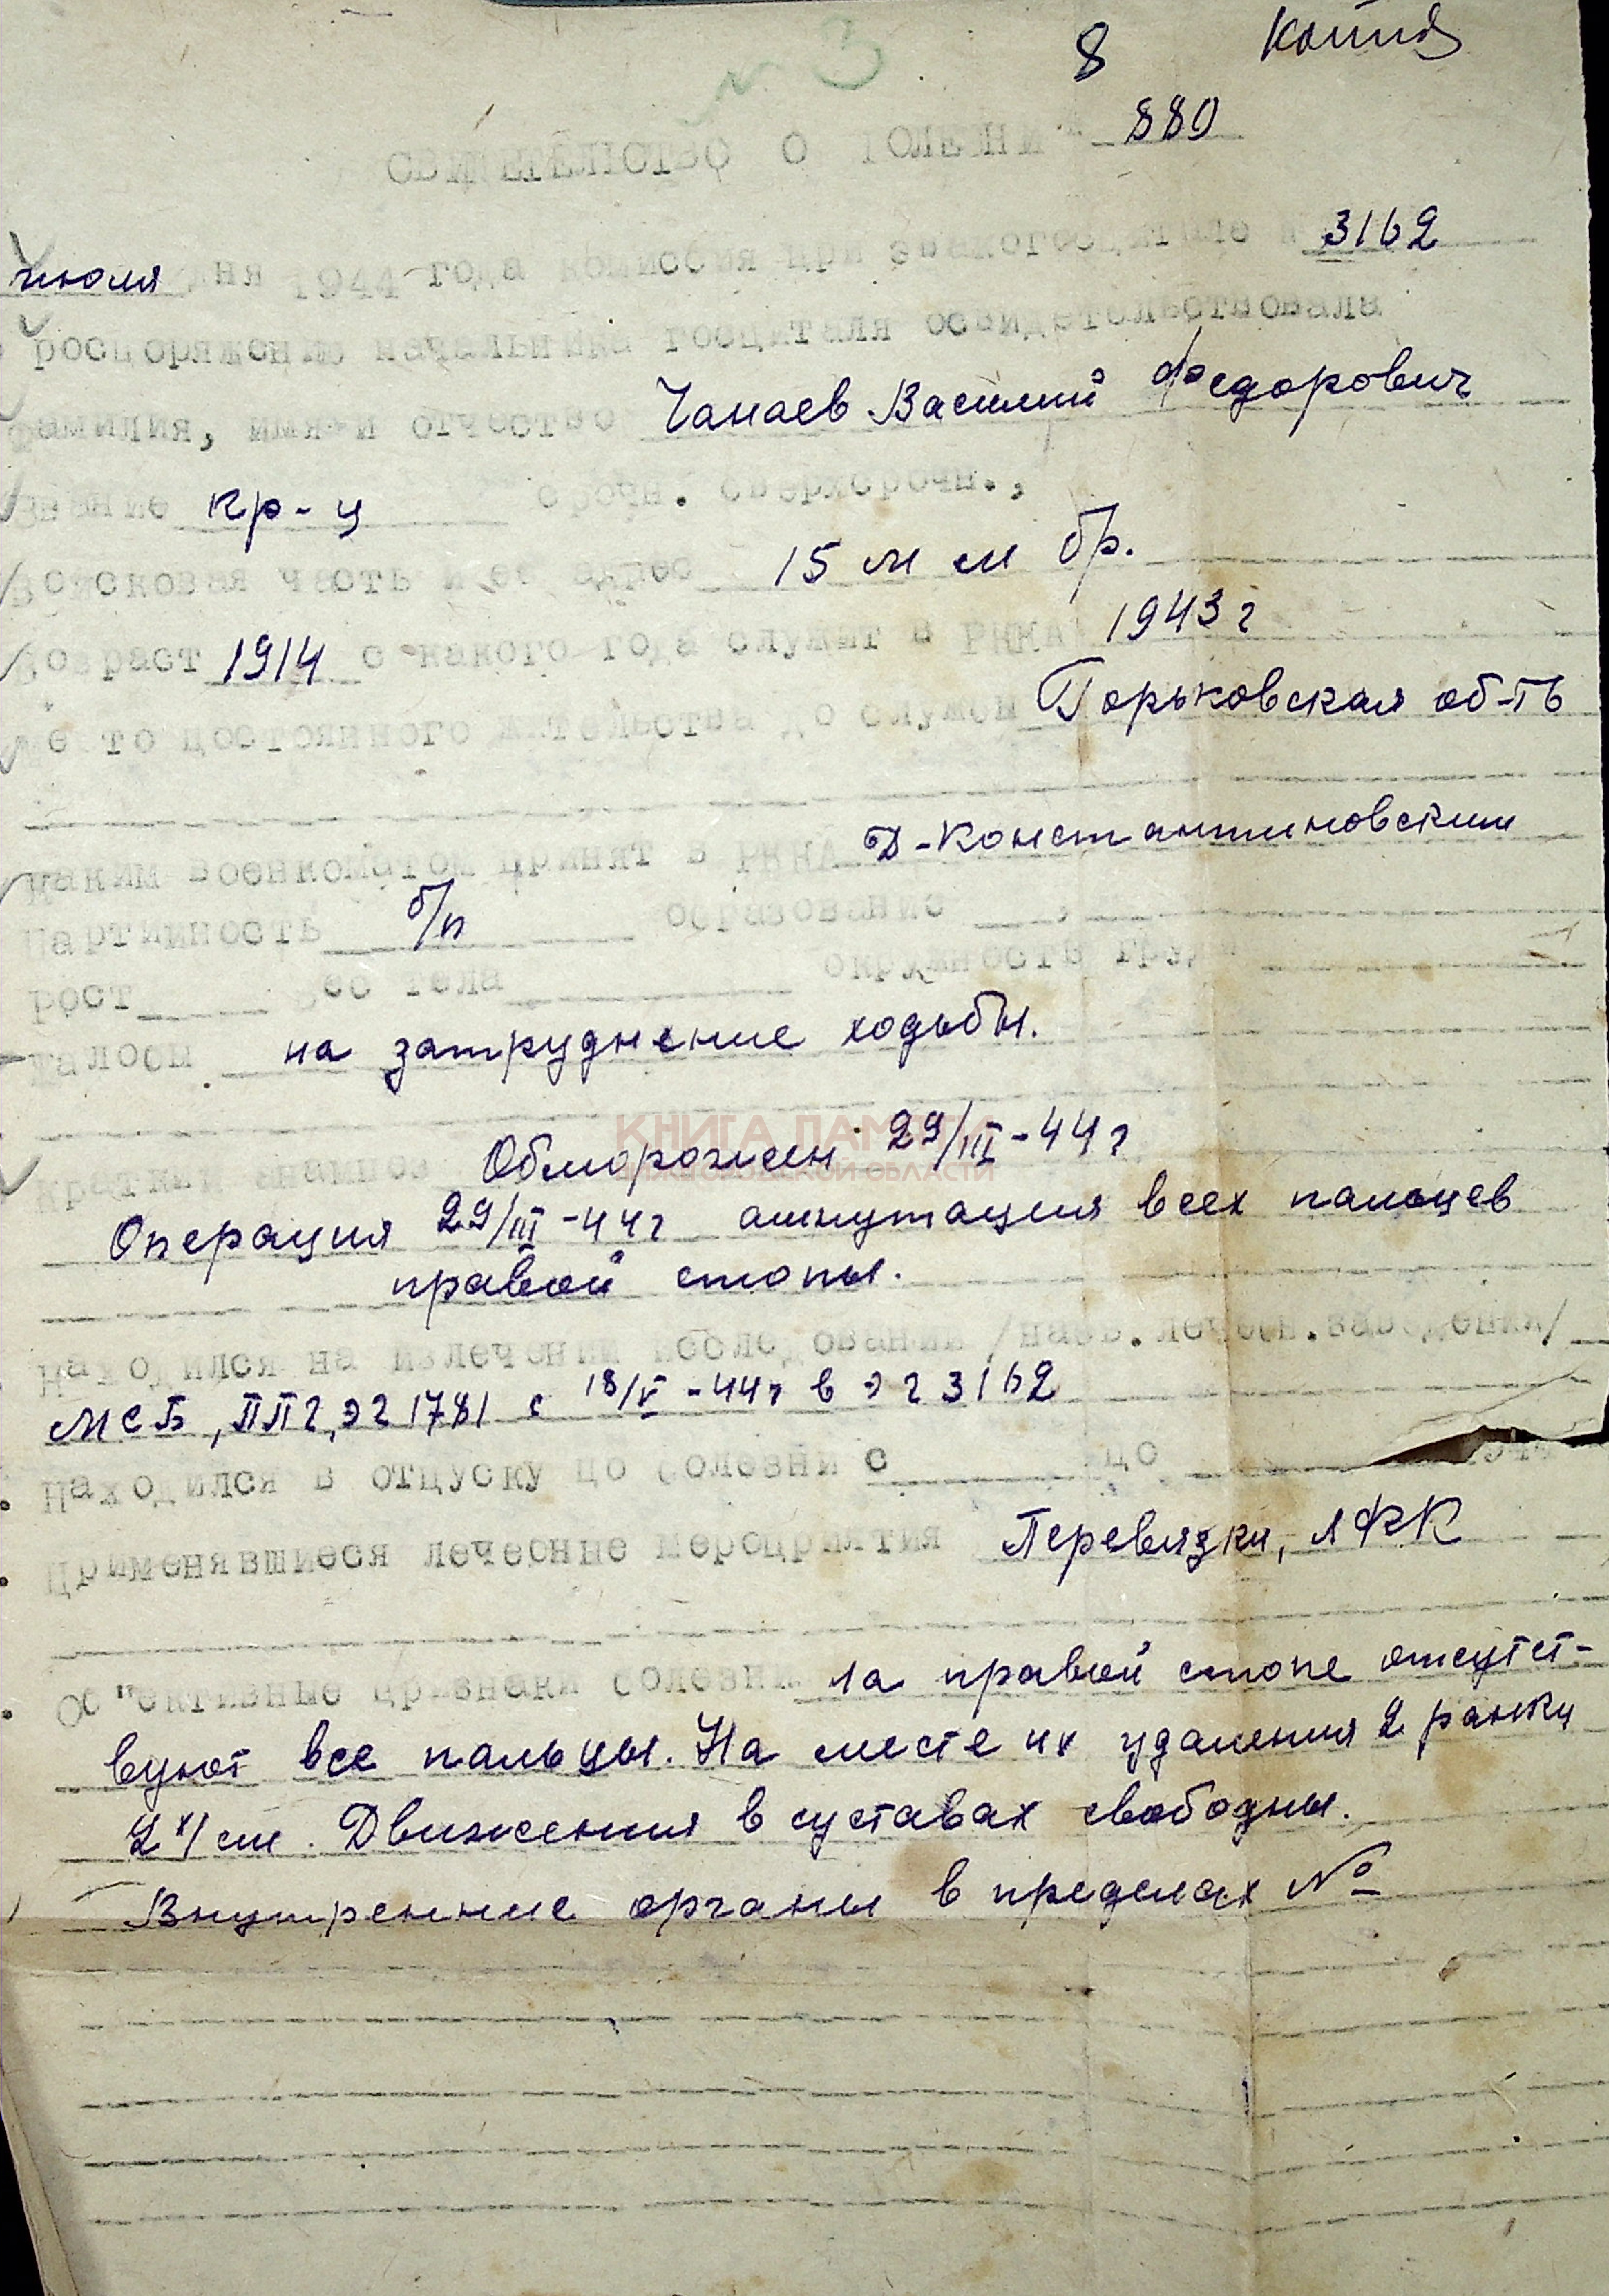 № 3
8 Копия
СВИДЕТЕЛЬСТВО О БОЛЕЗНИ № 880
июля дня 1944 года комиссия при эвакогоспитале № 3162
распоряжению начальника госпиталя освидетельствовала
Фамилия, имя и отчество Чанаев Василий Федорович
Звание кр-ц срочн. сверхсрочн.,
Войсковая часть и ее адрес 15 м м бр.
Возраст 1914 с какого года служит в РККА 1943 г
Место постоянного жительства до службы Горьковская об-ть
Каким военкоматом принят в РККА Д-Константиновским
Партийность б/п образование
Рост вес тела окружность груди
Жалобы на затруднение ходьбы.
КНИГА ПАМЯТИ
НИЖЕГОРОДСКОЙ ОБЛАСТИ
Краткий анамнез Обморожен 29/III-44 г
Операция 29/III-44 г ампутация всех пальцев
правой стопы.
Находился на излечении и исследовании /наев. лечебн. заведения/
МСБ, ППГ, ЭГ 1781 с 18/V-44 г в ЭГ 3162
Находился в отпуску по болезни с по
Применявшиеся лечебные мероприятия Перевязки, ЛФК
Об"ективные признаки болезни На правой стопе отсутст-
вуют все пальцы. На месте их удаления 2 ранки
2х1 см. Движения в суставах свободны.
Внутренние органы в пределах №